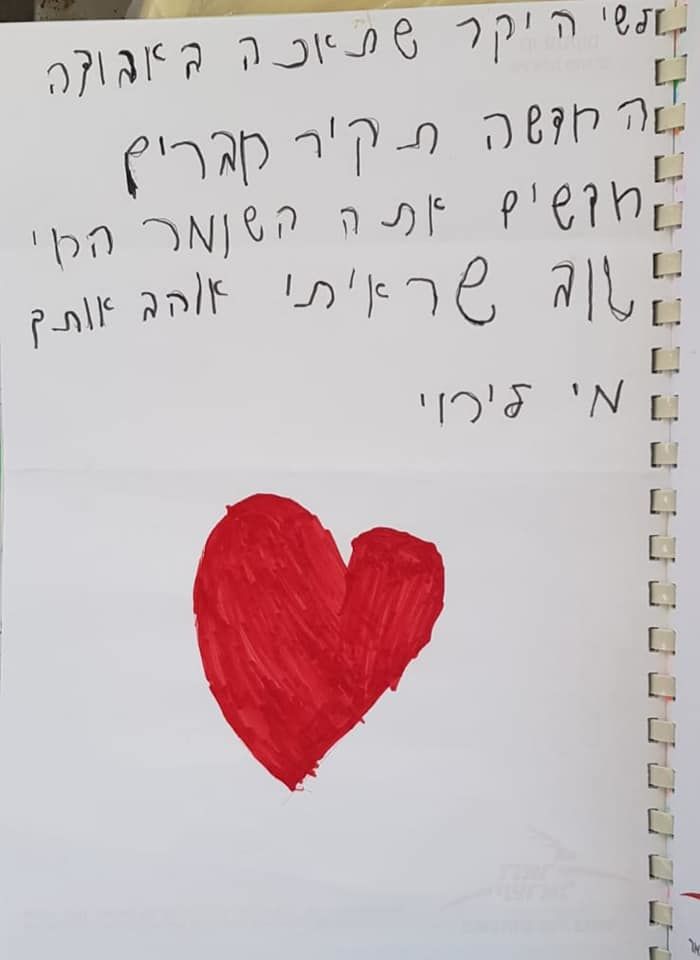 לשי היקר שתאכה באבודה
החדשה תקיר חברים
חדשים אתה השומר הכי
טוב שראיתי אוהב אותך
מי לירוי